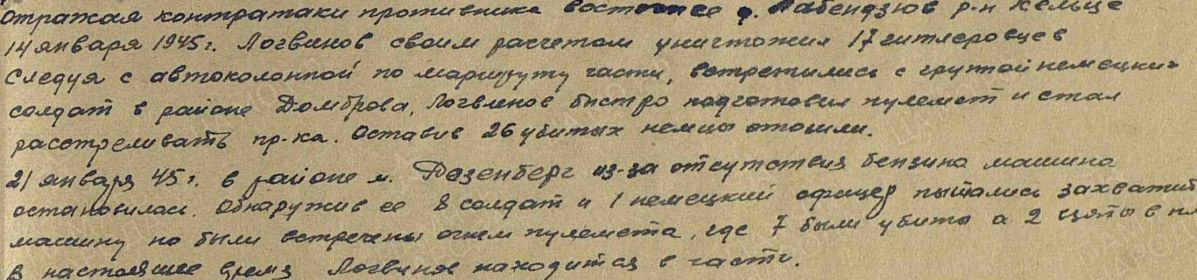 Отражая контратаки противника восточнее д. Лабендзюв р-н Кельце
14 января 1945 г. Логвинов своим расчетом уничтожил 17 гитлеровцев
Следуя с автоколонной по маршруту части, встретились с группой немецких
солдат в районе Домброва, Логвинов быстро подготовил пулемет и стал
расстреливать пр-ка. Оставив 26 убитых немцы отошли.
21 января 45 г. в районе м. Розенберг из-за отсутствия бензина машина
остановилась. Обнаружив ее 8 солдат и 1 немецкий офицер пытались захватить
машину но были встречены огнем пулемета, где 7 были убиты а 2 взяты в пл
В настоящее время Логвинов находится в части.